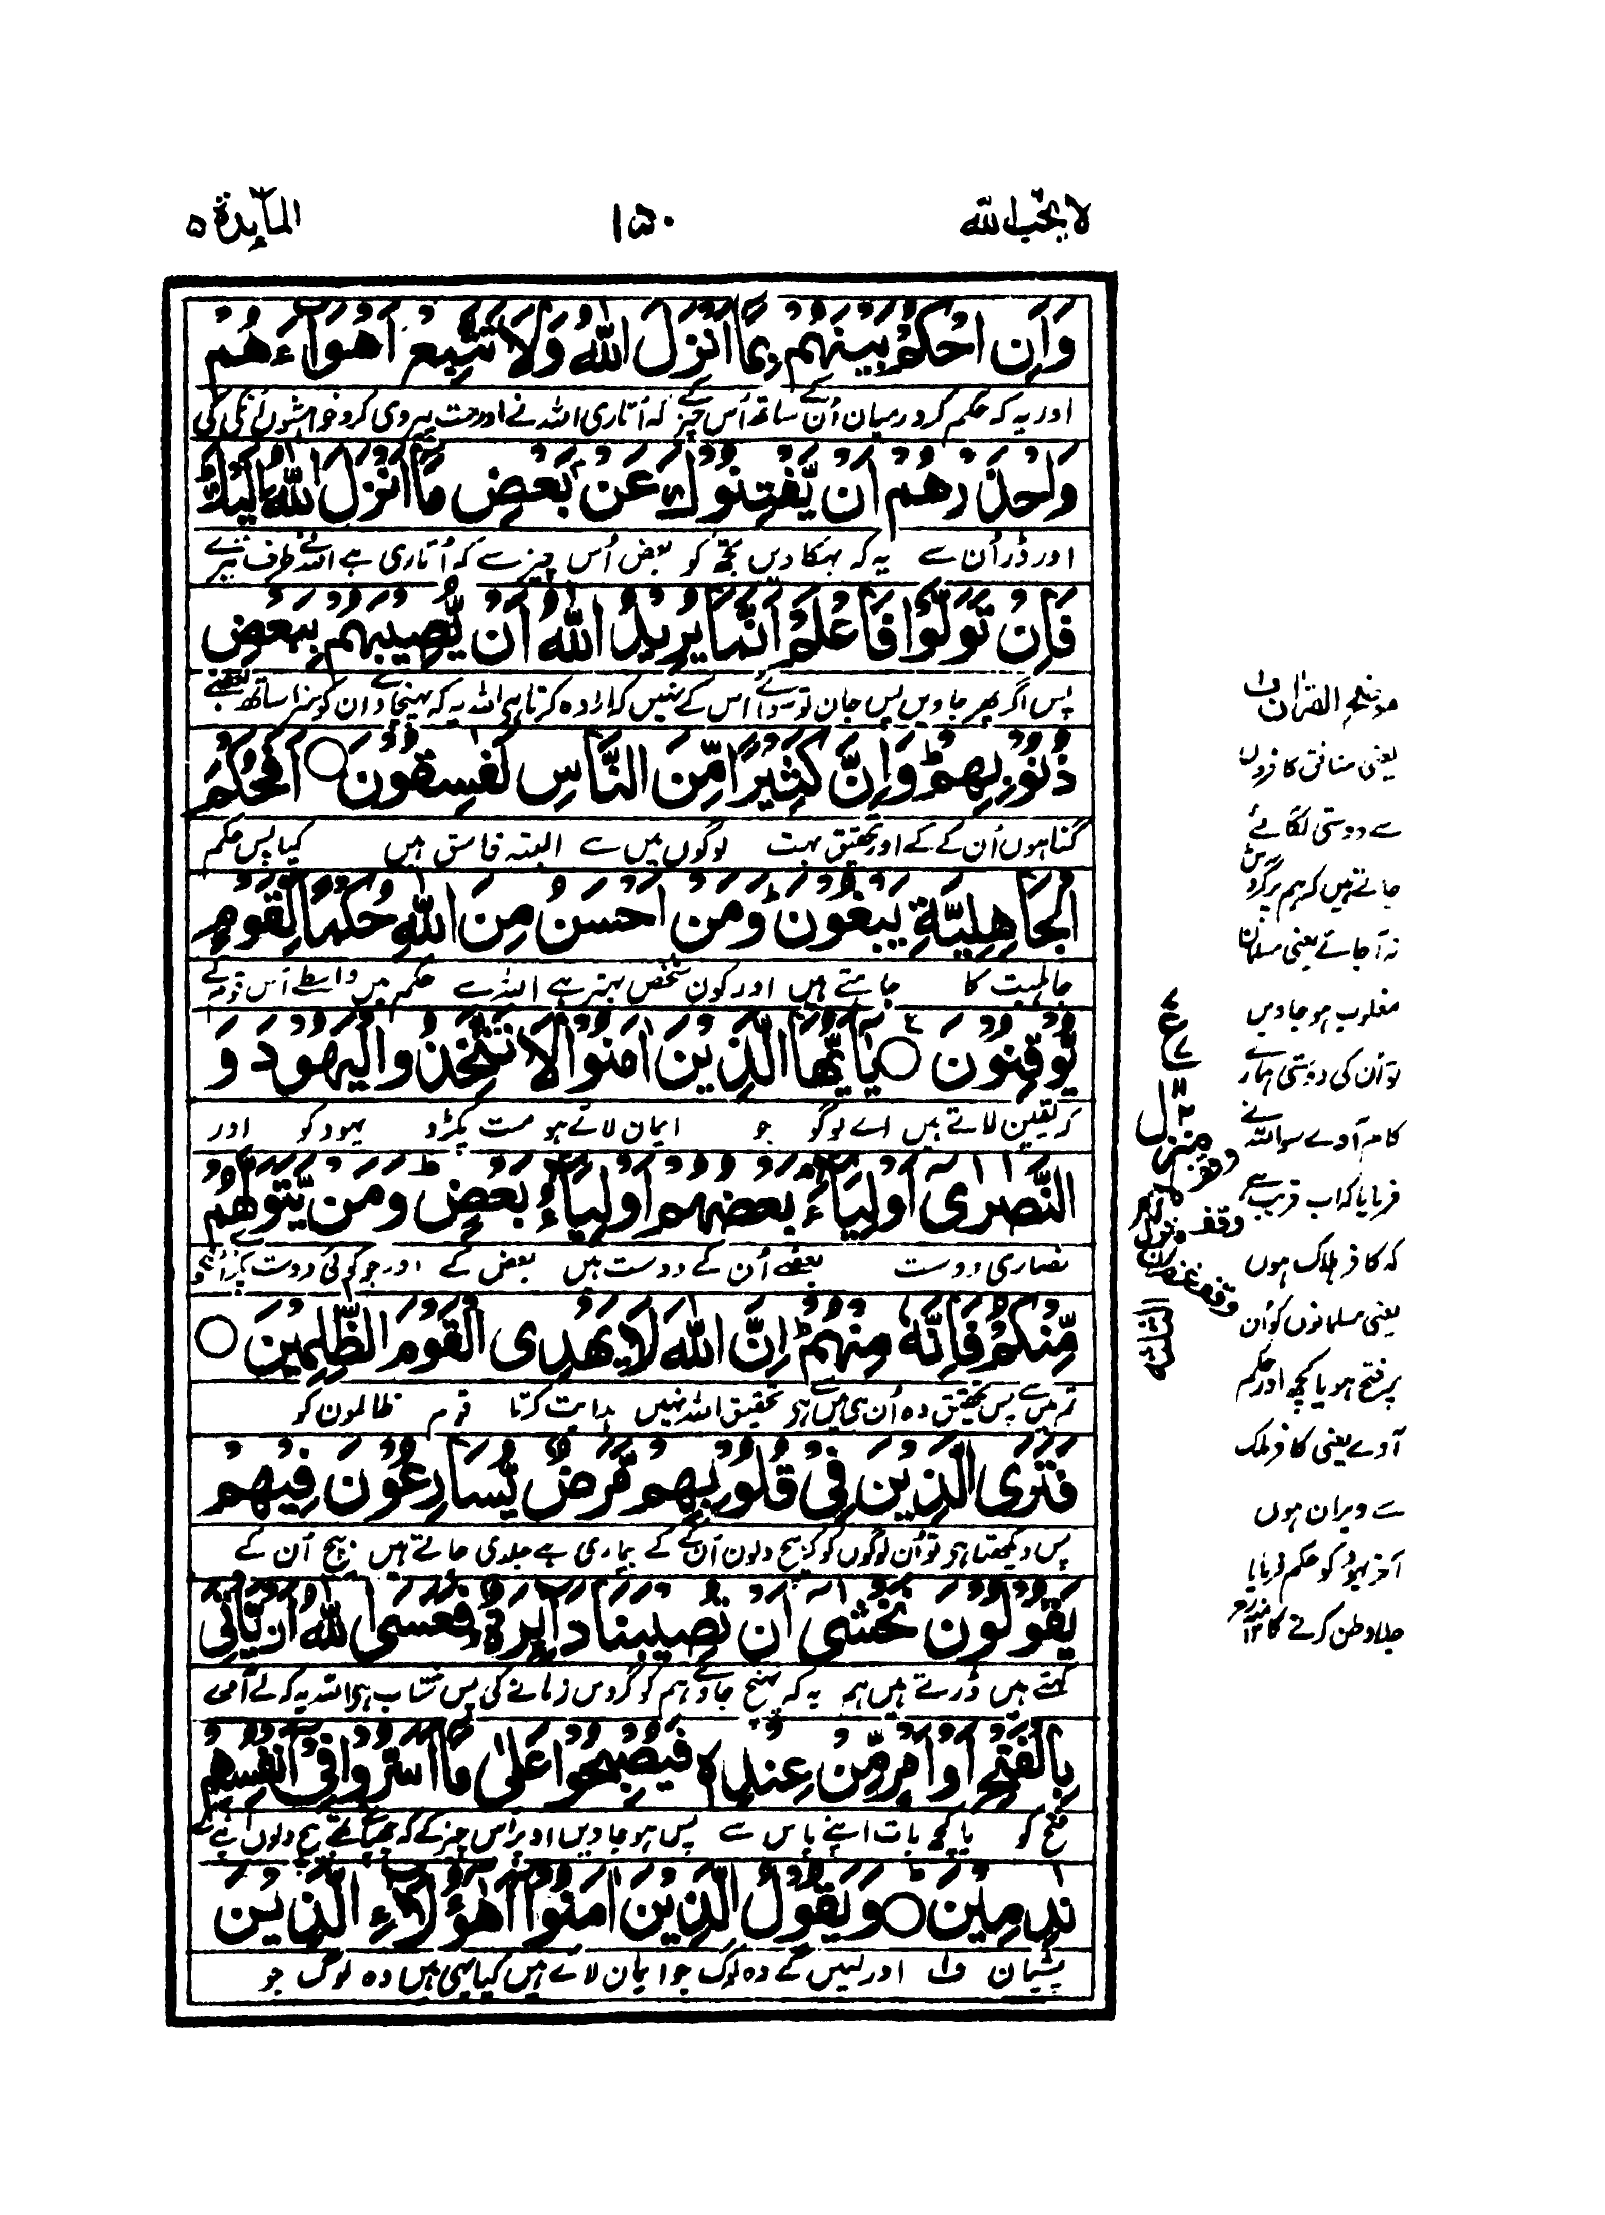 لا يحب الله ١٥٠ المآئدة ٥
وَاَنِ احْكُمْ بَيْنَهُمْ بِمَآ اَنْزَلَ اللّٰهُ وَلَا تَتَّبِعْ اَهْوَآءَهُمْ
اور یہ کہ حکم کرو درمیان اُن کے ساتھ اُس چیز کے کہ اُتاری اللہ نے اور مت پیروی کرو خواہشوں اُنکی کی
وَاحْذَرْهُمْ اَنْ يَّفْتِنُوْكَ عَنْ بَعْضِ مَآ اَنْزَلَ اللّٰهُ اِلَيْكَ ؕ
اور ڈر اُن سے یہ کہ بہکا دیں تجھ کو بعض اُس چیز سے کہ اُتاری ہے اللہ نے طرف تیرے
فَاِنْ تَوَلَّوْا فَاعْلَمْ اَنَّمَا يُرِيْدُ اللّٰهُ اَنْ يُّصِيْبَهُمْ بِبَعْضِ
پس اگر پھر جاویں پس جان تو سوائے اس کے نہیں کہ ارادہ کرتا ہی اللہ یہ کہ پہنچاوے ان کو سزا ساتھ بعضے
ذُنُوْبِهِمْ ؕ وَاِنَّ كَثِيْرًا مِّنَ النَّاسِ لَفٰسِقُوْنَ ○ اَفَحُكْمَ
گناہوں اُن کے کے اور تحقیق بہت لوگوں میں سے البتہ فاسق ہیں کیا پس حکم
الْجَاهِلِيَّةِ يَبْغُوْنَ ؕ وَمَنْ اَحْسَنُ مِنَ اللّٰهِ حُكْمًا لِّقَوْمٍ
جاہلیت کا چاہتے ہیں اور کون شخص بہتر ہے اللہ سے حکم میں واسطے اُس قوم کے
يُّوْقِنُوْنَ ○ يٰۤاَيُّهَا الَّذِيْنَ اٰمَنُوْا لَا تَتَّخِذُوا الْيَهُوْدَ وَ
کہ یقین لاتے ہیں اے لوگو جو ایمان لائے ہو مت پکڑو یہود کو اور
النَّصٰرٰۤى اَوْلِيَآءَ ۘ بَعْضُهُمْ اَوْلِيَآءُ بَعْضٍ ؕ وَمَنْ يَّتَوَلَّهُمْ
نصاریٰ دوست بعضے اُن کے دوست ہیں بعض کے اور جو کوئی دوست پکڑے اُنکو
مِّنْكُمْ فَاِنَّهٗ مِنْهُمْ ؕ اِنَّ اللّٰهَ لَا يَهْدِى الْقَوْمَ الظّٰلِمِيْنَ ○
تم میں سے پس تحقیق وہ اُن ہی میں سے ہی تحقیق اللہ نہیں ہدایت کرتا قوم ظالموں کو
فَتَرَى الَّذِيْنَ فِىْ قُلُوْبِهِمْ مَّرَضٌ يُّسَارِعُوْنَ فِيْهِمْ
پس دیکھتا ہی تو اُن لوگوں کو کہ بیچ دلوں اُن کے کے بیماری ہے جلدی جاتے ہیں بیچ اُن کے
يَقُوْلُوْنَ نَخْشٰۤى اَنْ تُصِيْبَنَا دَآئِرَةٌ ؕ فَعَسَى اللّٰهُ اَنْ يَّاْتِىَ
کہتے ہیں ڈرتے ہیں ہم یہ کہ پہنچ جاوے ہم کو گردش زمانے کی پس شتاب ہی اللہ یہ کہ لے آوے
بِالْفَتْحِ اَوْ اَمْرٍ مِّنْ عِنْدِهٖ فَيُصْبِحُوْا عَلٰى مَآ اَسَرُّوْا فِىْۤ اَنْفُسِهِمْ
فتح کو یا کچھ بات اپنے پاس سے پس ہو جاویں اوپر اُس چیز کے کہ چھپاتے تھے بیچ دلوں اپنے کے
نٰدِمِيْنَ ○ وَيَقُوْلُ الَّذِيْنَ اٰمَنُوْۤا اَهٰۤؤُلَآءِ الَّذِيْنَ
پشیمان ف۱ اور کہیں گے وہ لوگ جو ایمان لائے ہیں کیا یہی ہیں وہ لوگ جو
موضح القرآن ف۱
یعنی منافق کافروں
سے دوستی لگائے
جاتے ہیں کہ ہم پر گردش
نہ آجائے یعنی مسلمان
مغلوب ہو جاویں
تو اُن کی دوستی ہمارے
کام آوے سو اللہ نے
فرمایا کہ اب قریب ہے
کہ کافر ہلاک ہوں
یعنی مسلمانوں کو اُن
پر فتح ہو یا کچھ اور حکم
آوے یعنی کافر ملک
سے ویران ہوں
آخر یہود کو حکم فرمایا
جلاوطن کرنے کا ١٢
ع
منزل ٢
وقف لازم
وقف منزل
وقف غفران
الثلثة